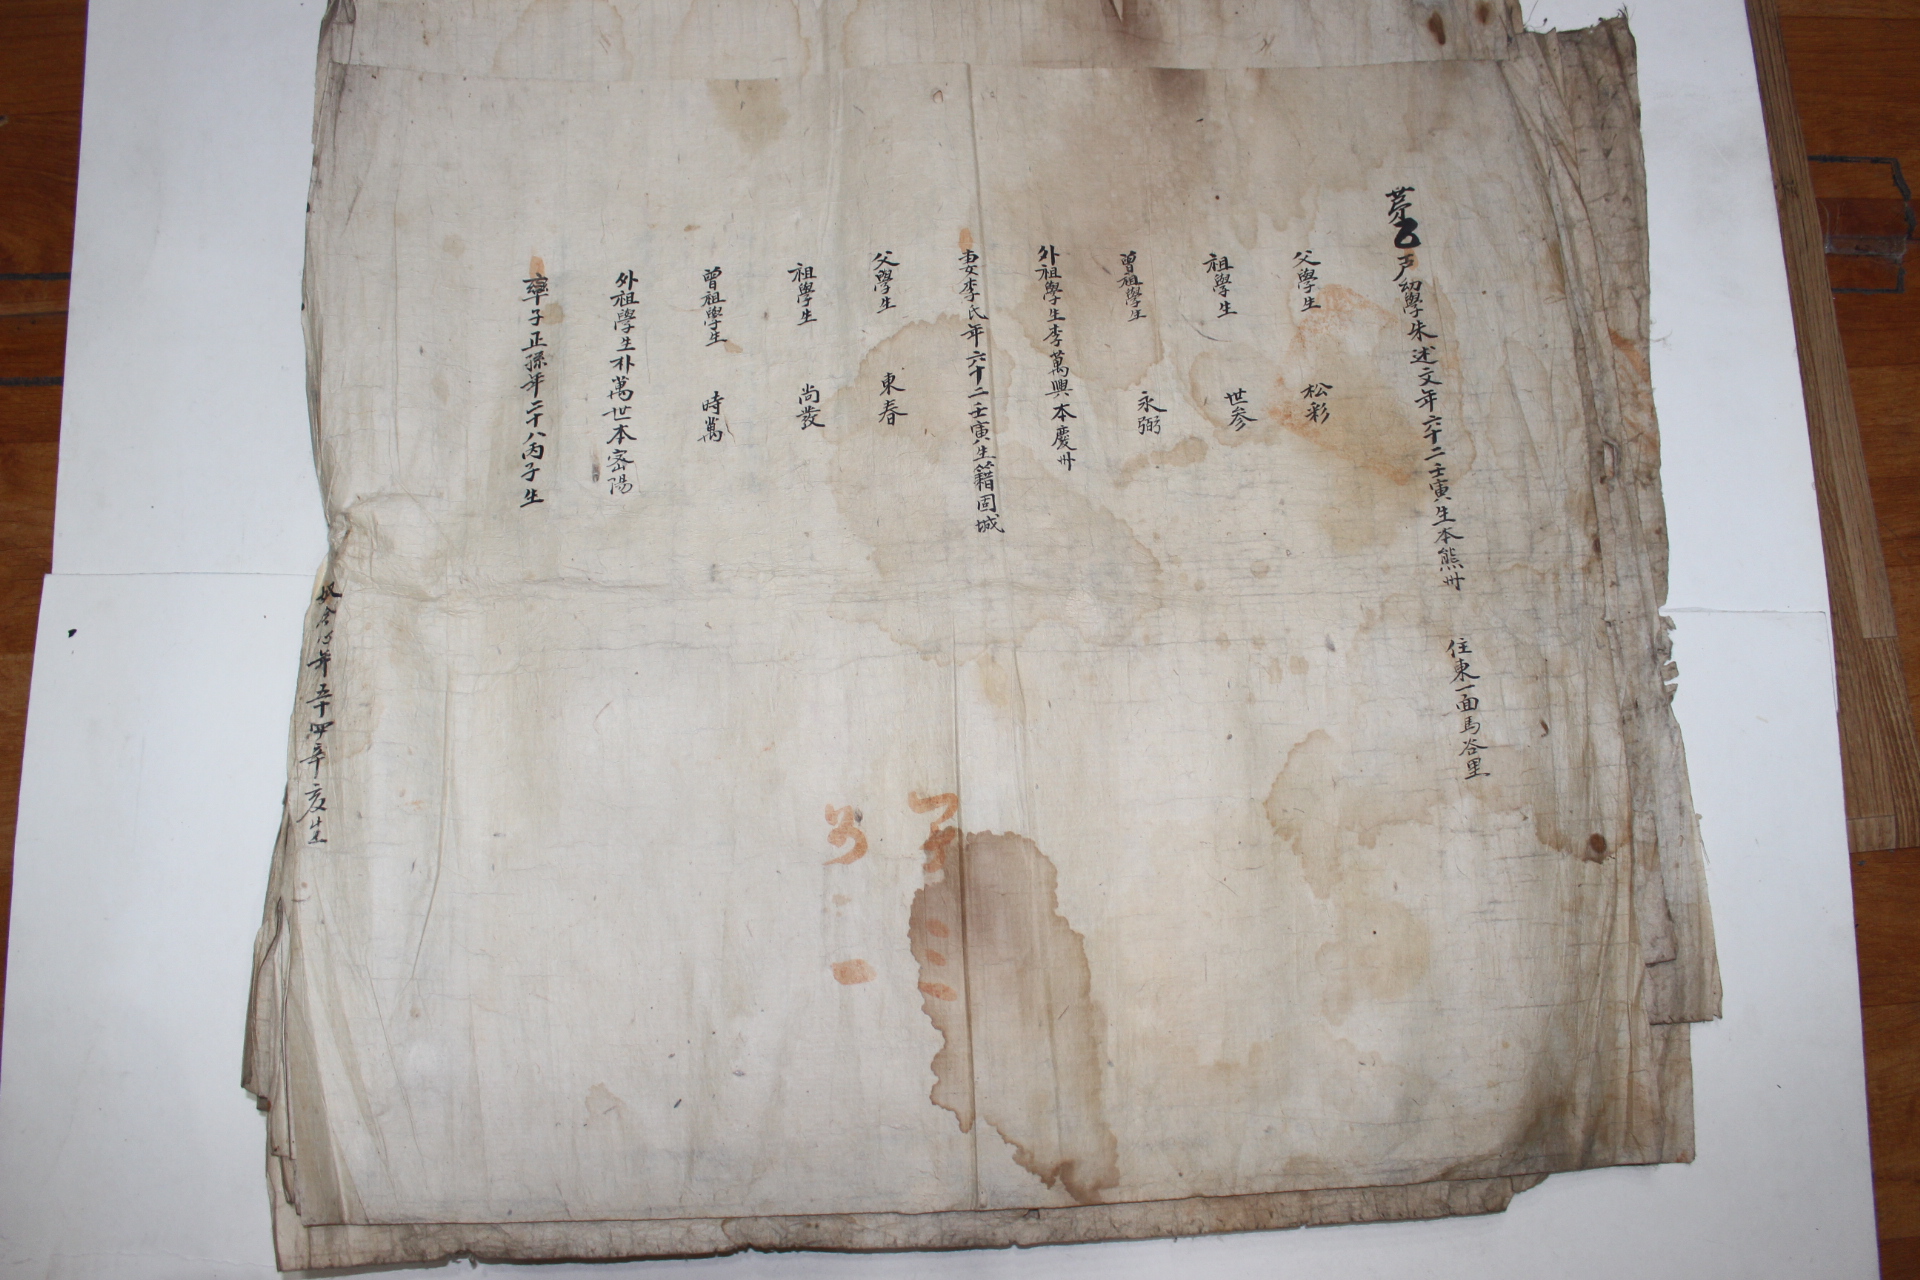 戶幼學朱述文年六十二壬寅生本熊州 住東一面馬谷里
父學生 松彩
祖學生 世參
曾祖學生 永弼
外祖學生李萬興本慶州
妻李氏年六十二壬寅生籍固城
父學生 東春
祖學生 尚發
曾祖學生 時萬
外祖學生朴萬世本密陽
率子正孫年二十八丙子生
奴 年五十四辛亥生